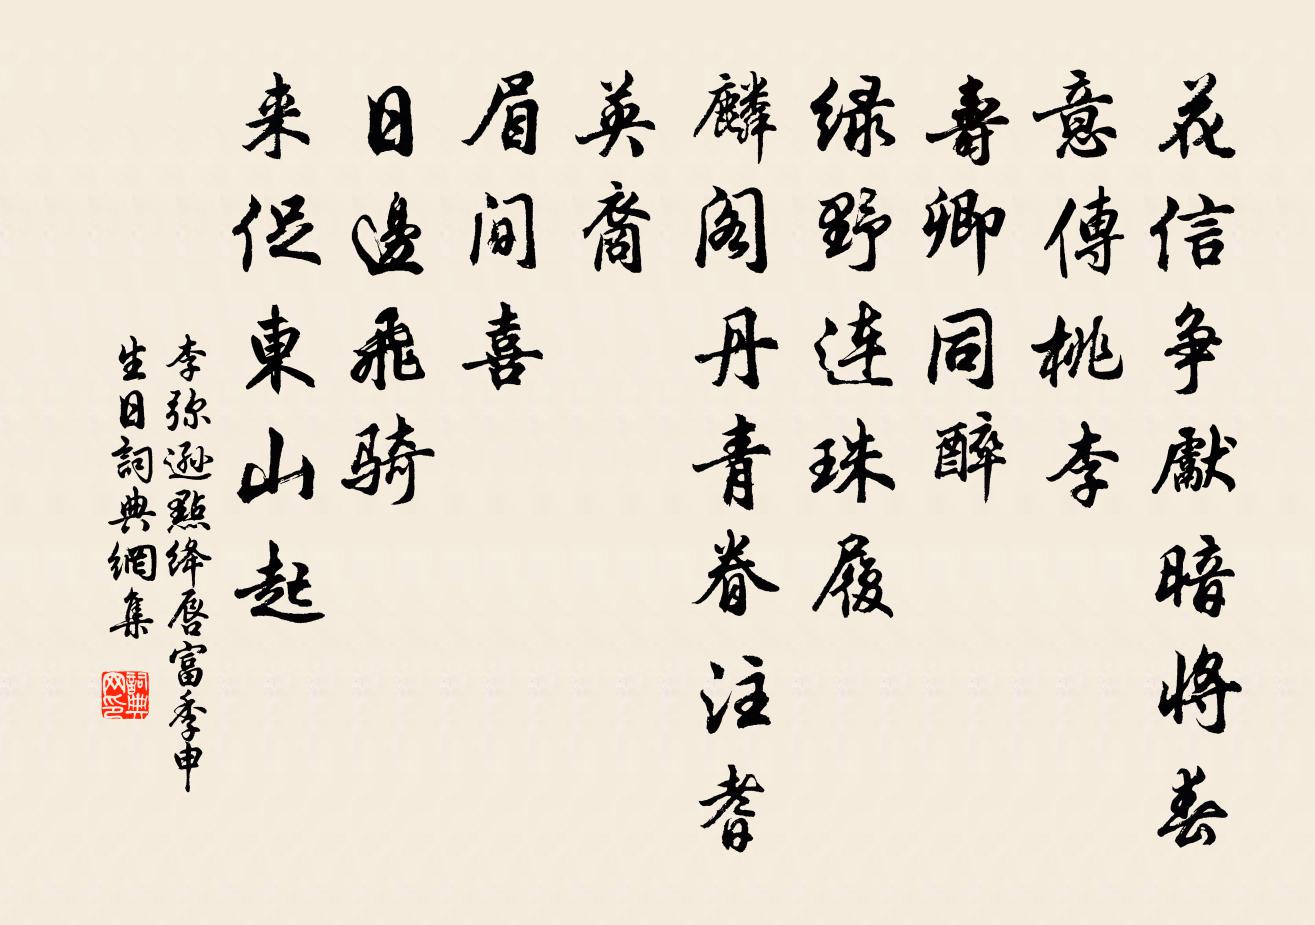 花信争獻暗將春
意傳桃李
壽卿同醉
緑野連珠履
麟阁丹青眷注耆
英裔
眉间喜
日邊飛騎
来促東山起
李弥遜點绛唇富季申
生日詞典網集
詞典网印